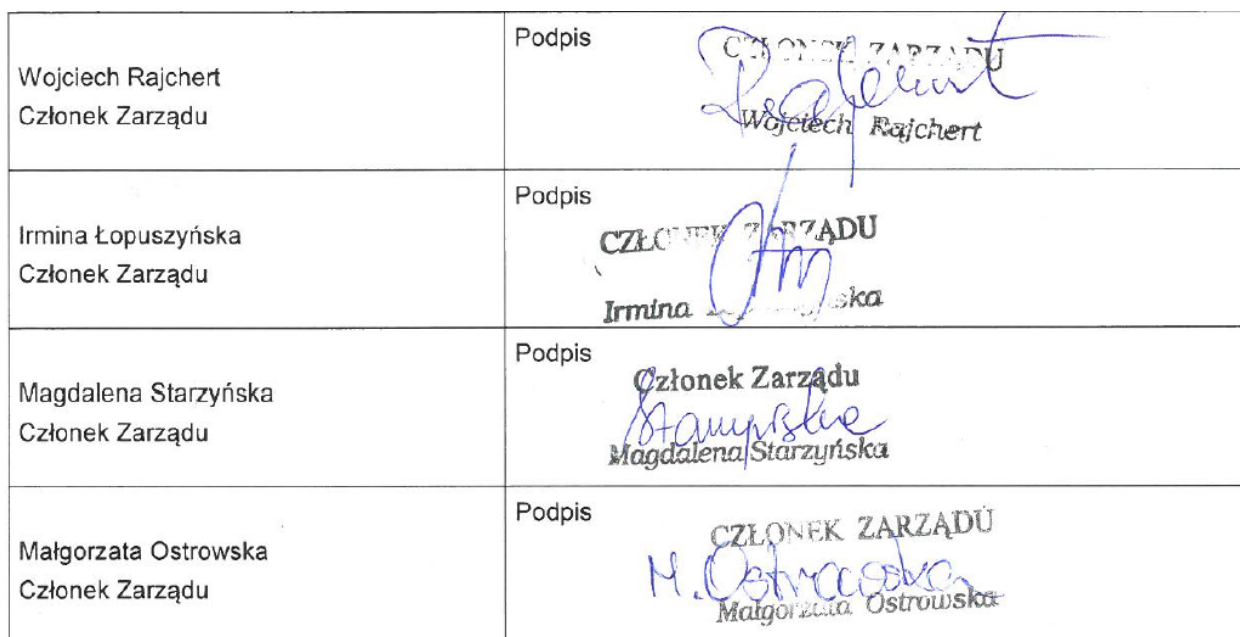 Wojciech Rajchert
Członek Zarządu
Podpis
CZŁONEK ZARZĄDU
Rajchert
Wojciech Rajchert
Irmina Łopuszyńska
Członek Zarządu
Podpis
CZŁONEK ZARZĄDU
Irmina
Magdalena Starzyńska
Członek Zarządu
Podpis
Członek Zarządu
Starzyńska
Magdalena Starzyńska
Małgorzata Ostrowska
Członek Zarządu
Podpis
CZŁONEK ZARZĄDU
M. Ostrowska
Małgorzata Ostrowska